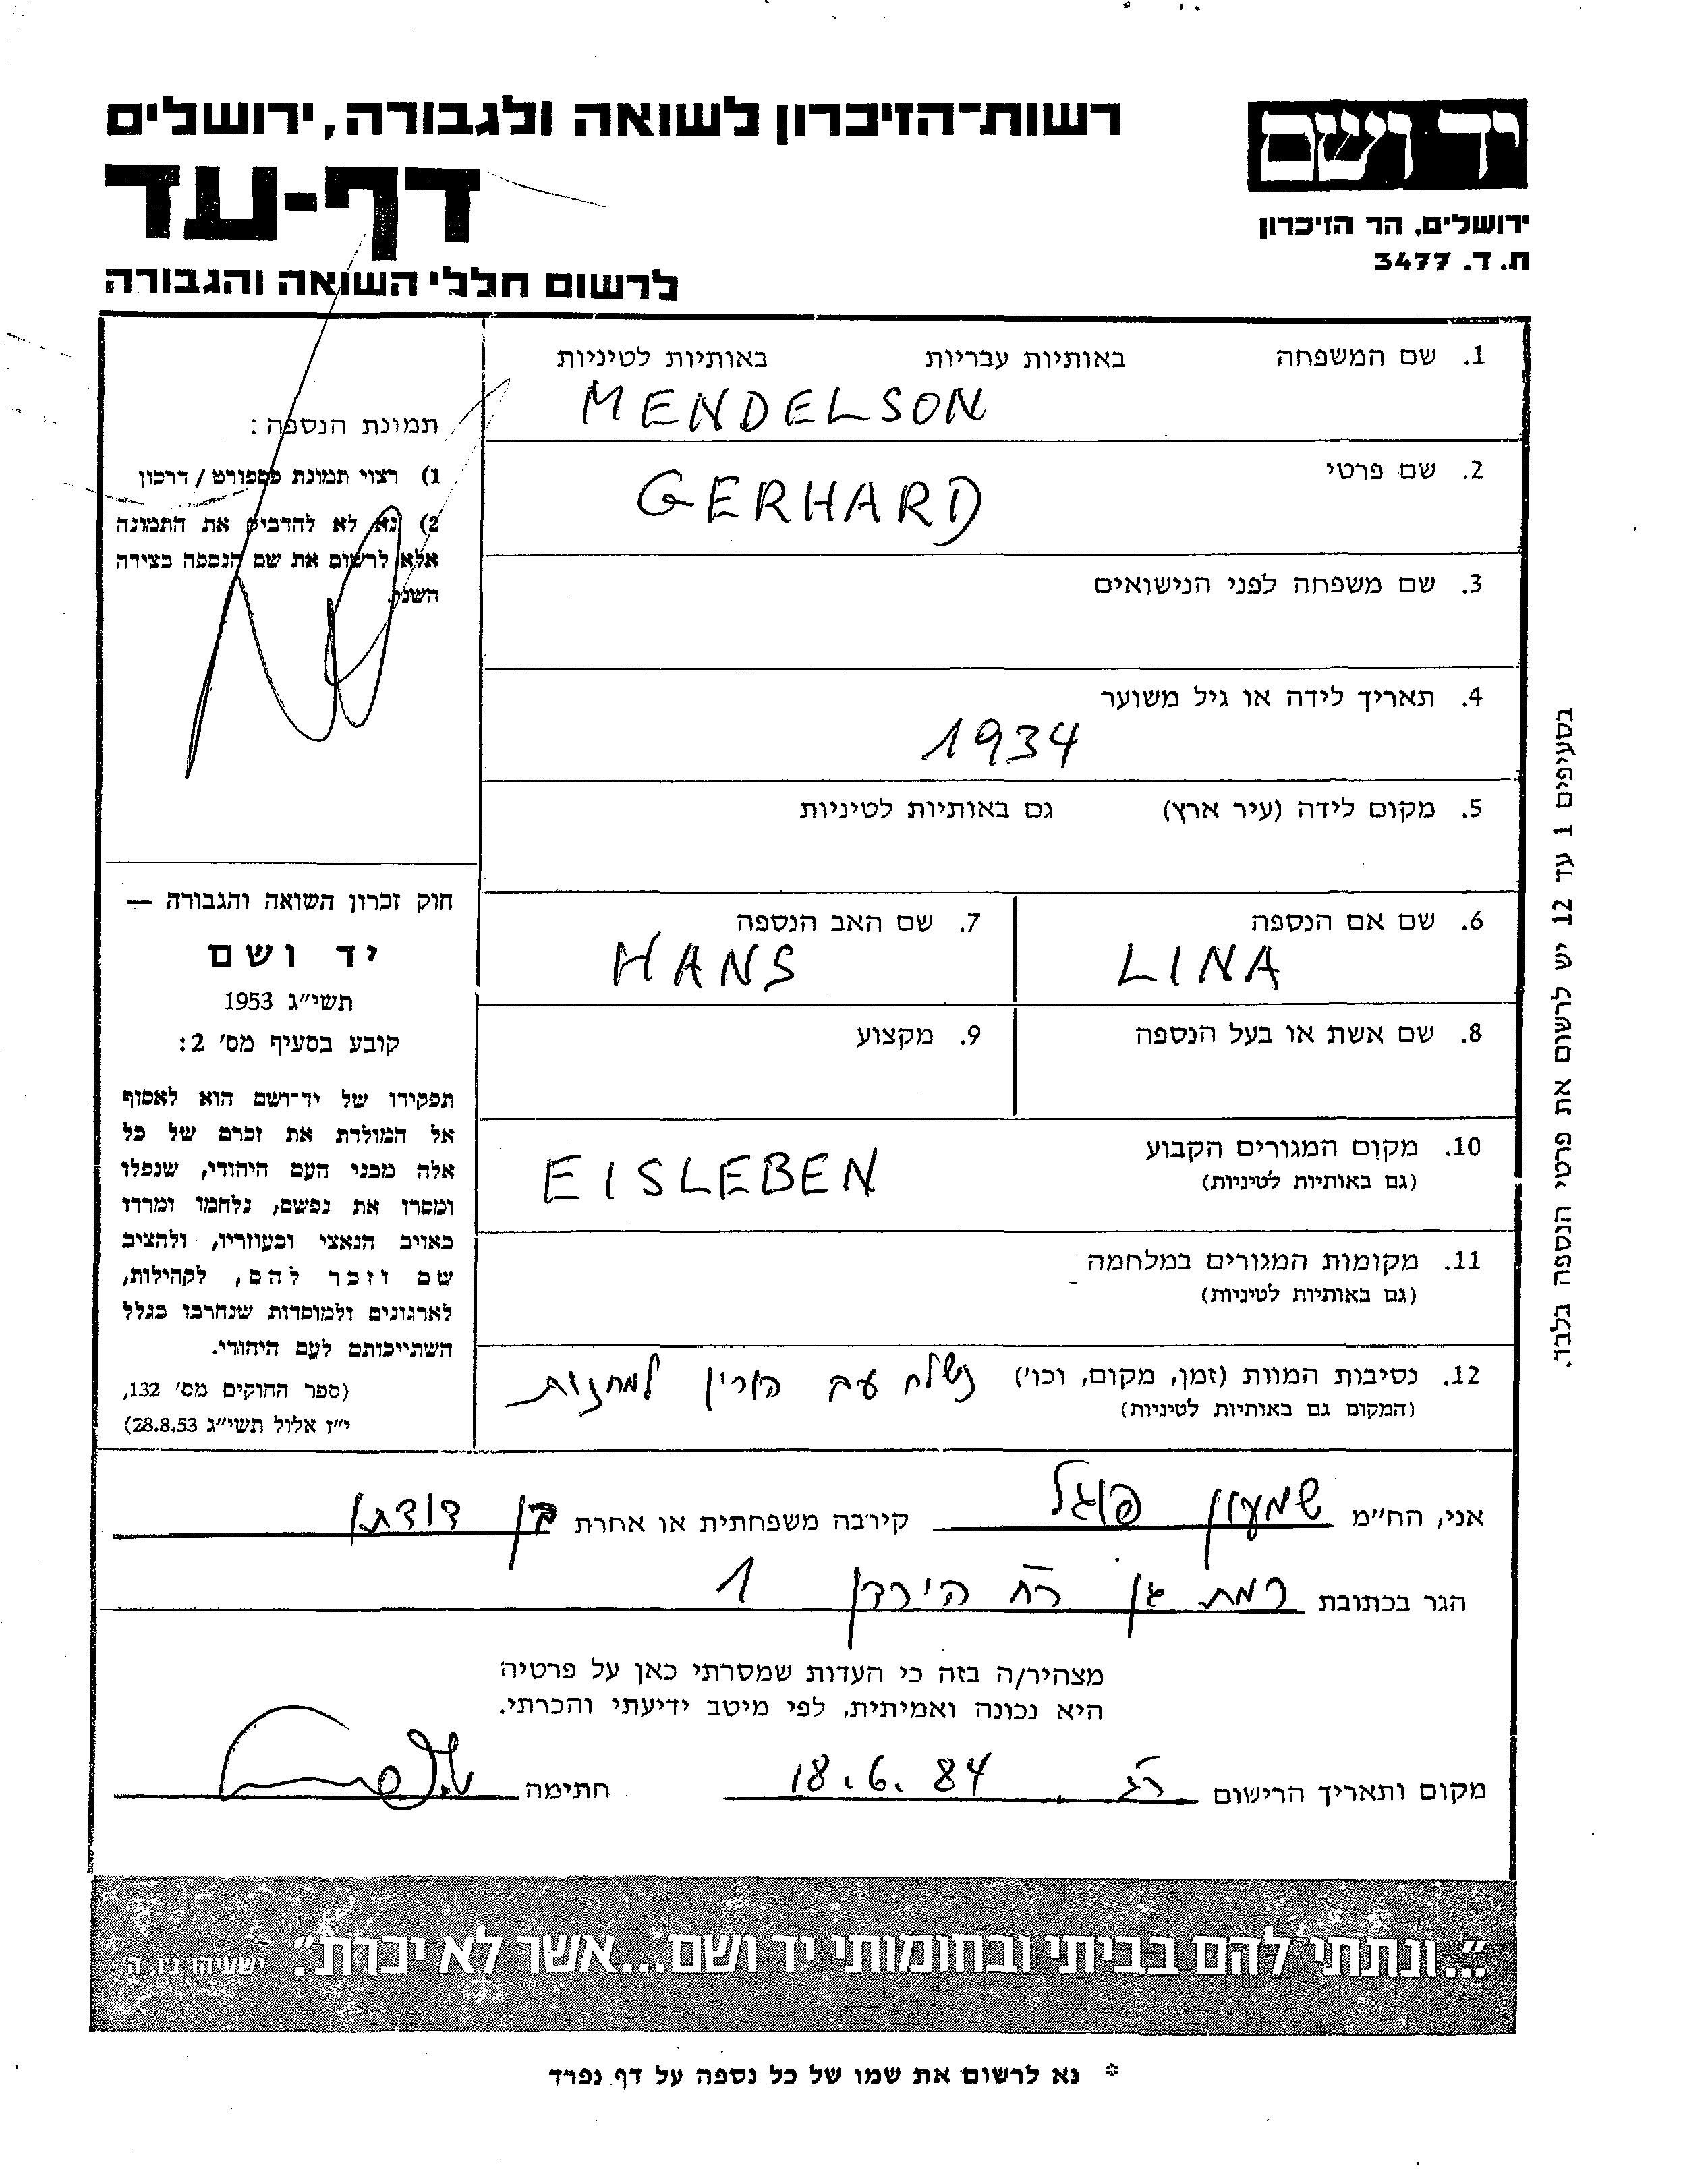 רשות־הזיכרון לשואה ולגבורה, ירושלים
דף-עד
לרשום חללי השואה והגבורה
יד ושם
ירושלים, הר הזיכרון
ת. ד. 3477
1. שם המשפחה באותיות עבריות באותיות לטיניות
MENDELSON
2. שם פרטי
GERHARD
3. שם משפחה לפני הנישואים
4. תאריך לידה או גיל משוער
1934
5. מקום לידה (עיר ארץ) גם באותיות לטיניות
6. שם אם הנספה
LINA
7. שם האב הנספה
HANS
8. שם אשת או בעל הנספה
9. מקצוע
10. מקום המגורים הקבוע
(גם באותיות לטיניות)
EISLEBEN
11. מקומות המגורים במלחמה
(גם באותיות לטיניות)
12. נסיבות המוות (זמן, מקום, וכו') נשלח עם הוריו למחנות
(המקום גם באותיות לטיניות)
תמונת הנספה:
1) רצוי תמונת פספורט / דרכון
2) נא לא להדביק את התמונה
אלא לרשום את שם הנספה בצידה
השני.
חוק זכרון השואה והגבורה —
יד ושם
תשי״ג 1953
קובע בסעיף מס׳ 2:
תפקידו של יד־ושם הוא לאסוף
אל המולדת את זכרם של כל
אלה מבני העם היהודי, שנפלו
ומסרו את נפשם, נלחמו ומרדו
באויב הנאצי ובעוזריו, ולהציב
שם וזכר להם, לקהילות,
לארגונים ולמוסדות שנחרבו בגלל
השתייכותם לעם היהודי.
(ספר החוקים מס׳ 132,
י״ז אלול תשי״ג 28.8.53)
בסעיפים 1 עד 12 יש לרשום את פרטי הנספה בלבד.
אני, הח״מ שמעון פוגל קירבה משפחתית או אחרת בן דודתו
הגר בכתובת רמת גן רח הירדן 1
מצהיר/ה בזה כי העדות שמסרתי כאן על פרטיה
היא נכונה ואמיתית, לפי מיטב ידיעתי והכרתי.
מקום ותאריך הרישום ר״ג 18.6.84 חתימה
״...ונתתי להם בביתי ובחומותי יד ושם...אשר לא יכרת״. ישעיהו נו, ה
* נא לרשום את שמו של כל נספה על דף נפרד